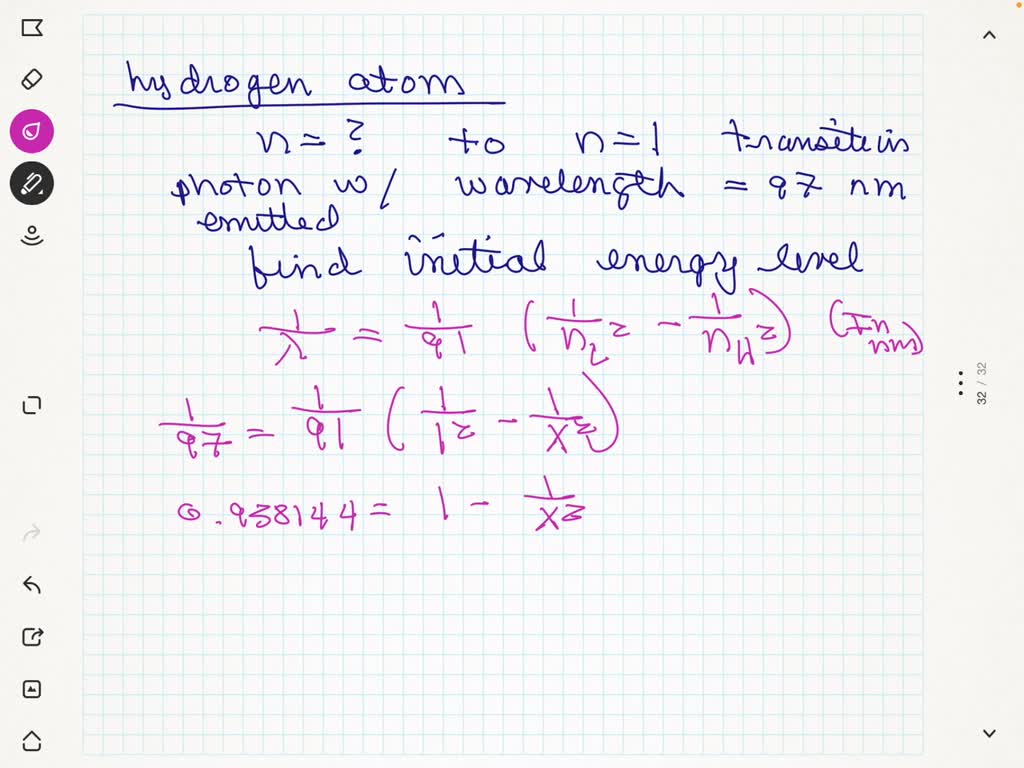 hydrogen atom
n = ? to n = 1 transition
photon w/ wavelength = 97 nm
emitted
find initial energy level
1/λ = 1/91 (1/n_L² - 1/n_H²) (In nm)
1/97 = 1/91 (1/1² - 1/x²)
0.938144 = 1 - 1/x²
32 / 32